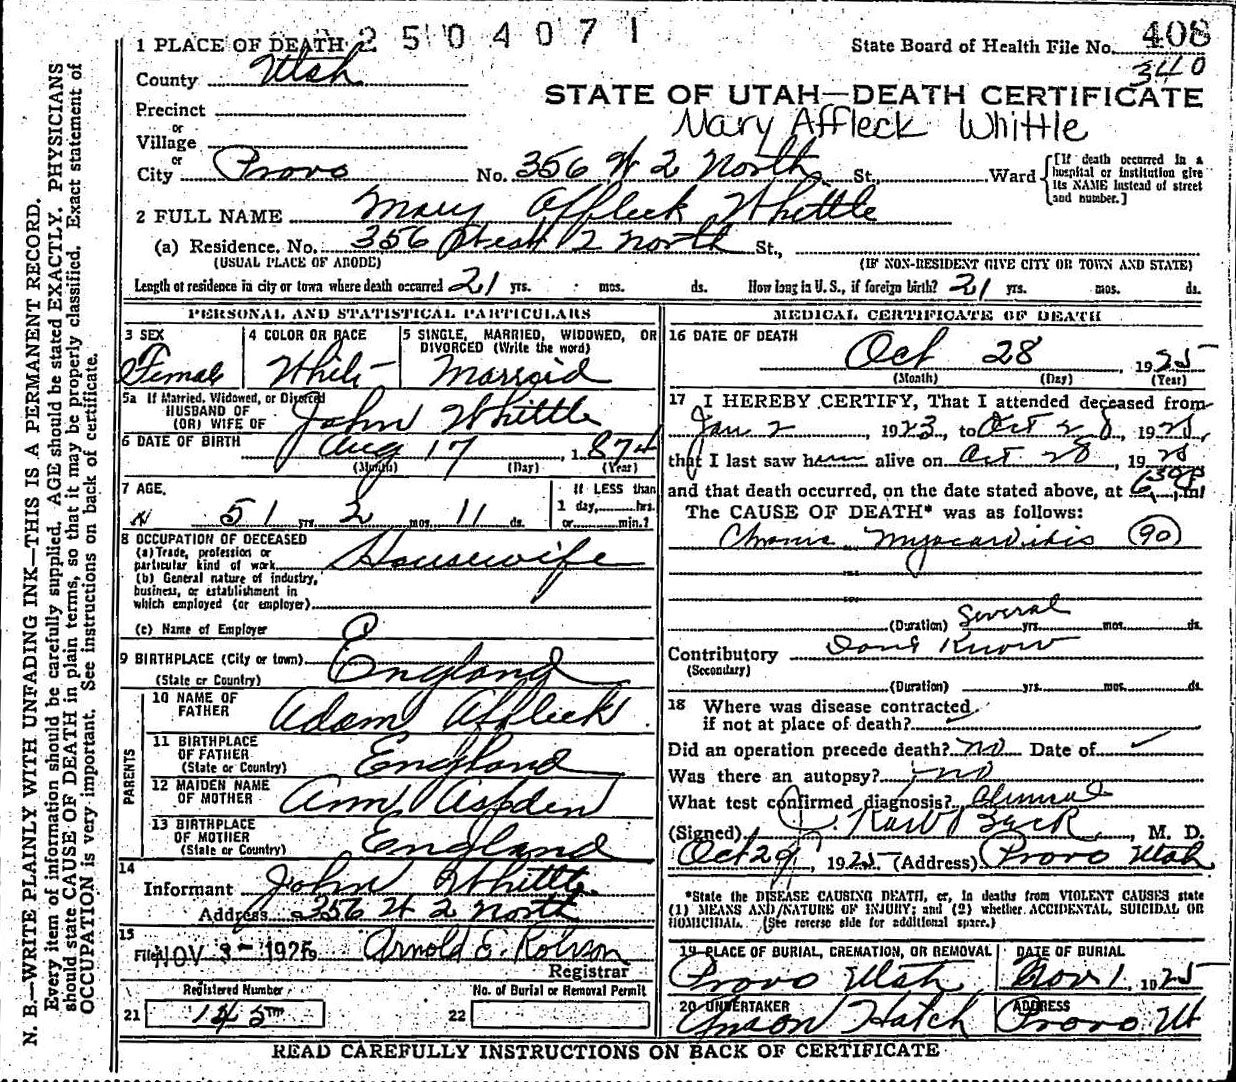 2504071
1 PLACE OF DEATH
State Board of Health File No. 408
340
County Utah
STATE OF UTAH—DEATH CERTIFICATE
Precinct
Mary Affleck Whittle
or
Village
or
City Provo No. 356 W 2 North St., Ward [If death occurred in a hospital or institution give its NAME instead of street and number.]
2 FULL NAME Mary Affleck Whittle
(a) Residence. No. 356 West 2 North St.,
(USUAL PLACE OF ABODE) (IF NON-RESIDENT GIVE CITY OR TOWN AND STATE)
Length of residence in city or town where death occurred 21 yrs. mos. ds. How long in U. S., if foreign birth? 21 yrs. mos. ds.
PERSONAL AND STATISTICAL PARTICULARS
3 SEX
Female
4 COLOR OR RACE
White
5 SINGLE, MARRIED, WIDOWED, OR
DIVORCED (Write the word)
Married
5a If Married, Widowed, or Divorced
HUSBAND OF
(OR) WIFE OF John Whittle
6 DATE OF BIRTH Aug 17, 1874
(Month) (Day) (Year)
7 AGE. If LESS than
51 yrs. 2 mos. 11 ds. 1 day, hrs.
or min.?
8 OCCUPATION OF DECEASED
(a) Trade, profession or
particular kind of work Housewife
(b) General nature of industry,
business, or establishment in
which employed (or employer)
(c) Name of Employer
9 BIRTHPLACE (City or town)
(State or Country) England
PARENTS
10 NAME OF
FATHER Adam Affleck
11 BIRTHPLACE
OF FATHER
(State or Country) England
12 MAIDEN NAME
OF MOTHER Ann Aspden
13 BIRTHPLACE
OF MOTHER
(State or Country) England
14
Informant John Whittle
Address 356 W 2 North
15
Filed NOV 3- 1925 Arnold E. Robison
Registrar
Registered Number No. of Burial or Removal Permit
21 145 22
MEDICAL CERTIFICATE OF DEATH
16 DATE OF DEATH
Oct 28, 1925
(Month) (Day) (Year)
17 I HEREBY CERTIFY, That I attended deceased from
Jan 2, 1923, to Oct 28, 1925,
that I last saw h alive on Oct 28, 1925
and that death occurred, on the date stated above, at 630P m.
The CAUSE OF DEATH* was as follows:
Chronic Myocarditis (90)
(Duration) Several yrs. mos. ds.
Contributory Dont Know
(Secondary)
(Duration) yrs. mos. ds.
18 Where was disease contracted
if not at place of death?
Did an operation precede death? no Date of
Was there an autopsy? no
What test confirmed diagnosis? Clinical
(Signed) J. Karl Beck, M. D.
Oct 29, 1925 (Address) Provo Utah
*State the DISEASE CAUSING DEATH, or, in deaths from VIOLENT CAUSES state
(1) MEANS AND NATURE OF INJURY; and (2) whether ACCIDENTAL, SUICIDAL OR
HOMICIDAL. (See reverse side for additional space.)
19 PLACE OF BURIAL, CREMATION, OR REMOVAL DATE OF BURIAL
Provo Utah Nov 1, 1925
20 UNDERTAKER ADDRESS
Anson Hatch Provo Ut
READ CAREFULLY INSTRUCTIONS ON BACK OF CERTIFICATE
N. B.—WRITE PLAINLY WITH UNFADING INK—THIS IS A PERMANENT RECORD.
Every item of information should be carefully supplied. AGE should be stated EXACTLY. PHYSICIANS
should state CAUSE OF DEATH in plain terms, so that it may be properly classified. Exact statement of
OCCUPATION is very important. See instructions on back of certificate.